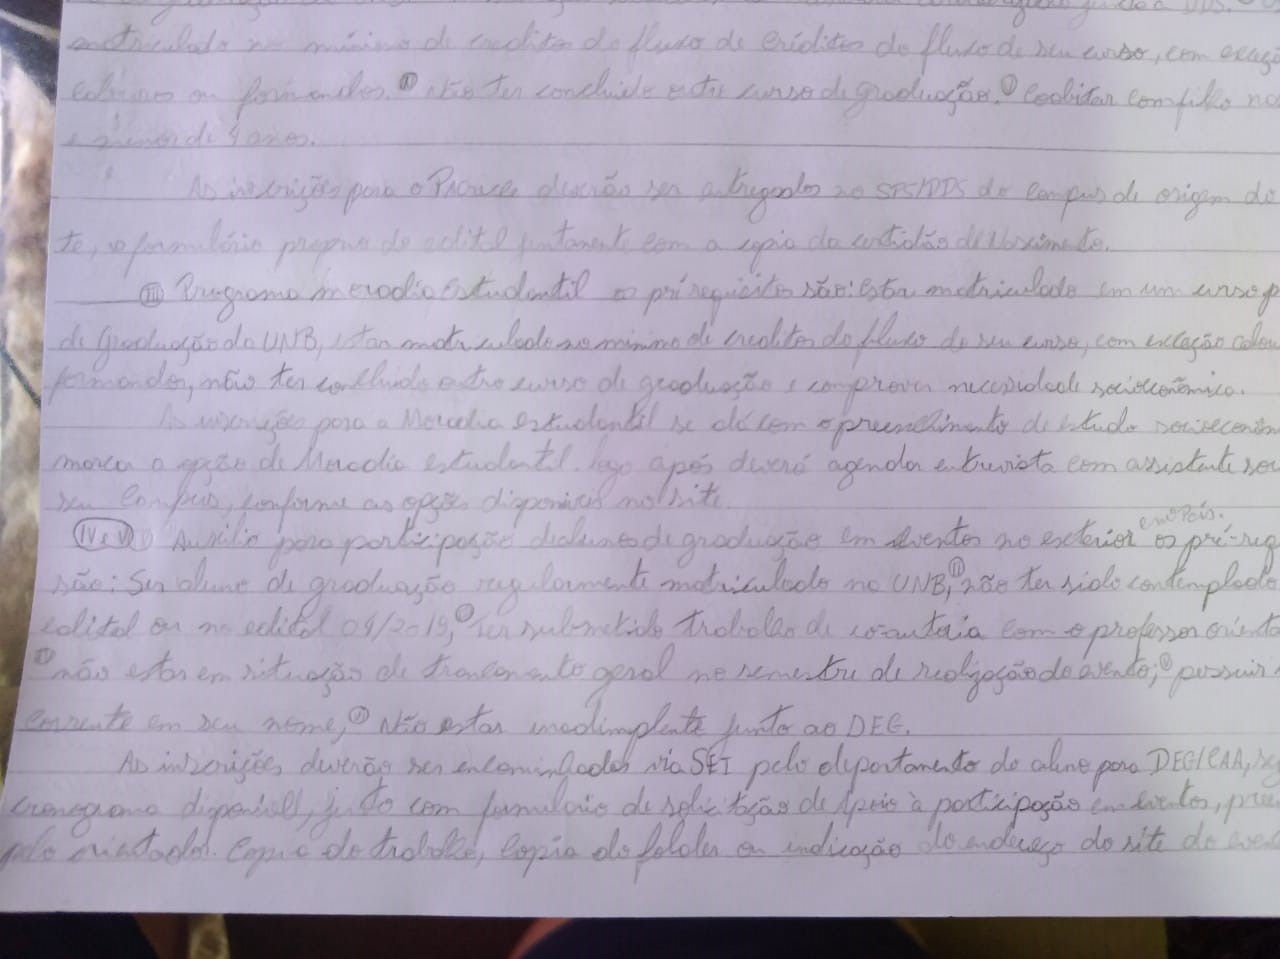 DDS.
matriculado no mínimo de creditos do fluxo de créditos do fluxo de seu curso, com exceçã
calouros ou formandos. IV Não ter concluido outro curso de graduação. V Coabitar com filho
e menor de 4 anos.
As inscrições para o deverão ser entregados no SPS/DDS do campus de origem do
te, o formulário proprio do edital juntamente com a copia da certidão de Nascimento.
III Programa moradia Estudantil os pré requisitos são: estar matriculado em um curso p
de Graduação da UNB, estar matriculado no minimo de creditos do fluxo de seu curso, com exceção calou
formandos, não ter concluido outro curso de graduação e comprovar necessidade socioeconômica.
As inscrições para a Moradia estudantil se dá com o preenchimento de estudo socioeconôm
marca a opção de Moradia estudantil. logo após deverá agendar entrevista com assistente soci
seu Campus, conforme as opções disponiveis no site.
IV e V Auxilio para participação de alunos de graduação em eventos no exterior e no País. os pré-req
são: Ser aluno de graduação regularmente matriculado na UNB, II não ter sido contemplado
edital ou no edital 04/2019, III ter submetido trabalho de co-autoria com o professor orienta
IV não estar em situação de trancamento geral no semestre de realização do evento; V possuir
corrente em seu nome, VI Não estar inadimplente junto ao DEG.
As inscrições deverão ser encaminhadas via SEI pelo departamento do aluno para DEG/CAA, seg
cronograma disponivel, junto com formulario de solicitação de Apoio à participação em eventos, preen
pelo orientador. Copia do trabalho, copia do folder ou indicação do endereço do site do even